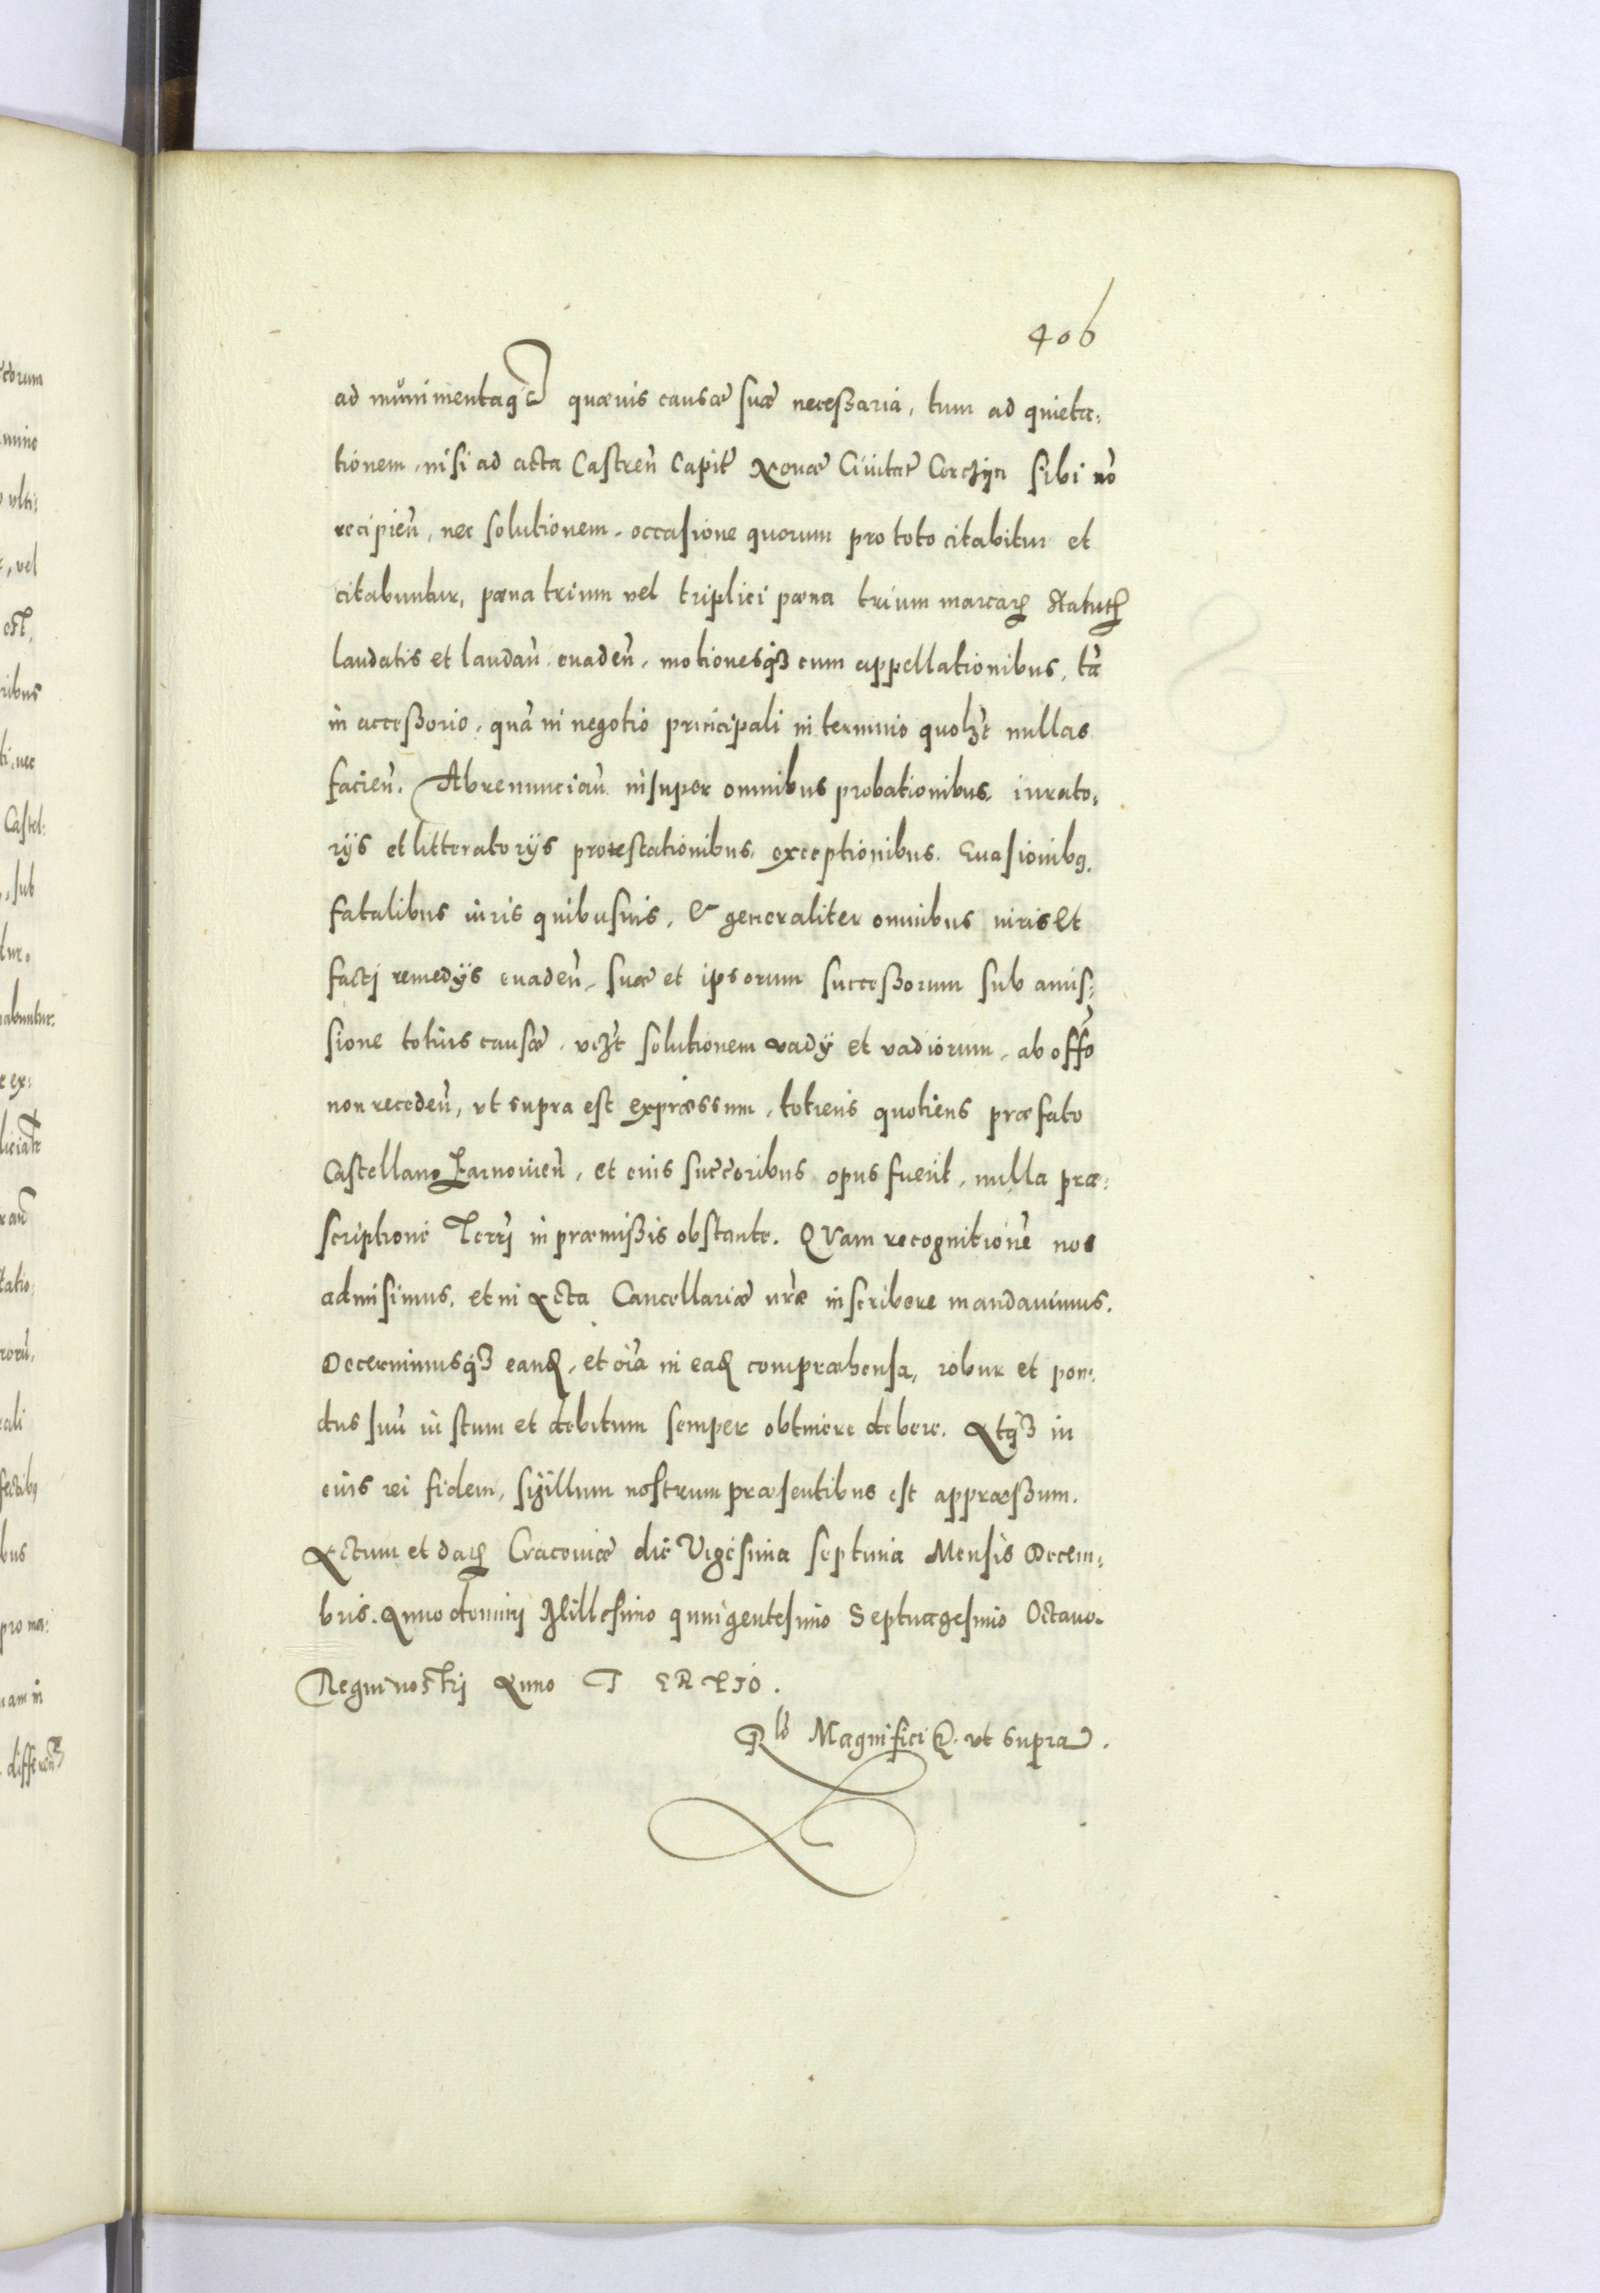 406
ad munimentaq̃ quævis causæ suæ necessaria, tum ad quieta:
tionem, nisi ad acta Castreñ Capit̃ Novæ Civitat̃ Corczyn sibi nõ
recipieñ, nec solutionem, occasione quorum pro toto citabitur et
citabuntur, pœna trium vel triplici pœna trium marcar̃ statut̃
laudatis et laudañ, evadeñ, motionesq3 cum appellationibus, tã
in accessorio, quã in negotio principali in termino quolz̃t nullas
facieñ. Abrenunciañ insuper omnibus probationibus, iurato,
rijs et litteratorijs protestationibus, exceptionibus, Evasionib9,
fatalibus iuris quibusvis, & generaliter omnibus iuris et
facti remedijs evadeñ, suæ et ipsorum successorum sub amis:
sione totius causæ, viz̃t solutionem vadÿ et vadiorum, ab offõ
non recedeñ, ut supra est expræssum, totiens quotiens præfato
Castellano Żarnovieñ, et eius succ̃oribus opus fuerit, nulla præ:
scriptione Terr̃j in præmissis obstante. QVam recognitionẽ nos
admisimus, et in Acta Cancellariæ nr̃æ inscribere mandavimus.
Decernimusq3 eand̃, et oĩa in ead̃ compræhensa, robur et pon:
dus suũ iustum et debitum semper obtinere debere. Atq3 in
eius rei fidem, sigillum nostrum præsentibus est appræssum.
Actum et dat̃ Cracoviæ die Vigesima septima Mensis Decem:
bris. Anno dominj Millesimo quingentesimo Septuagesimo Octavo.
Regni nostrj Anno TERTIO.
Rlõ Magnifici ut supra.